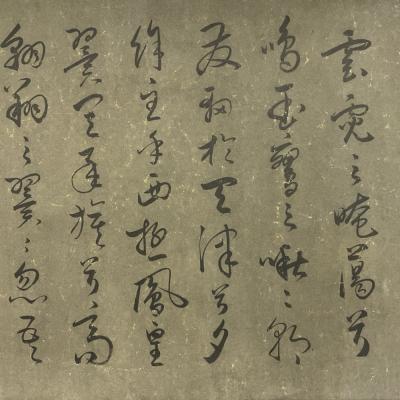 雲霓之晻藹兮
鳴玉鸞之啾〻朝
發軔於天津兮夕
余至乎西極鳳皇
翼其承旂兮高
翱翔之翼〻忽吾